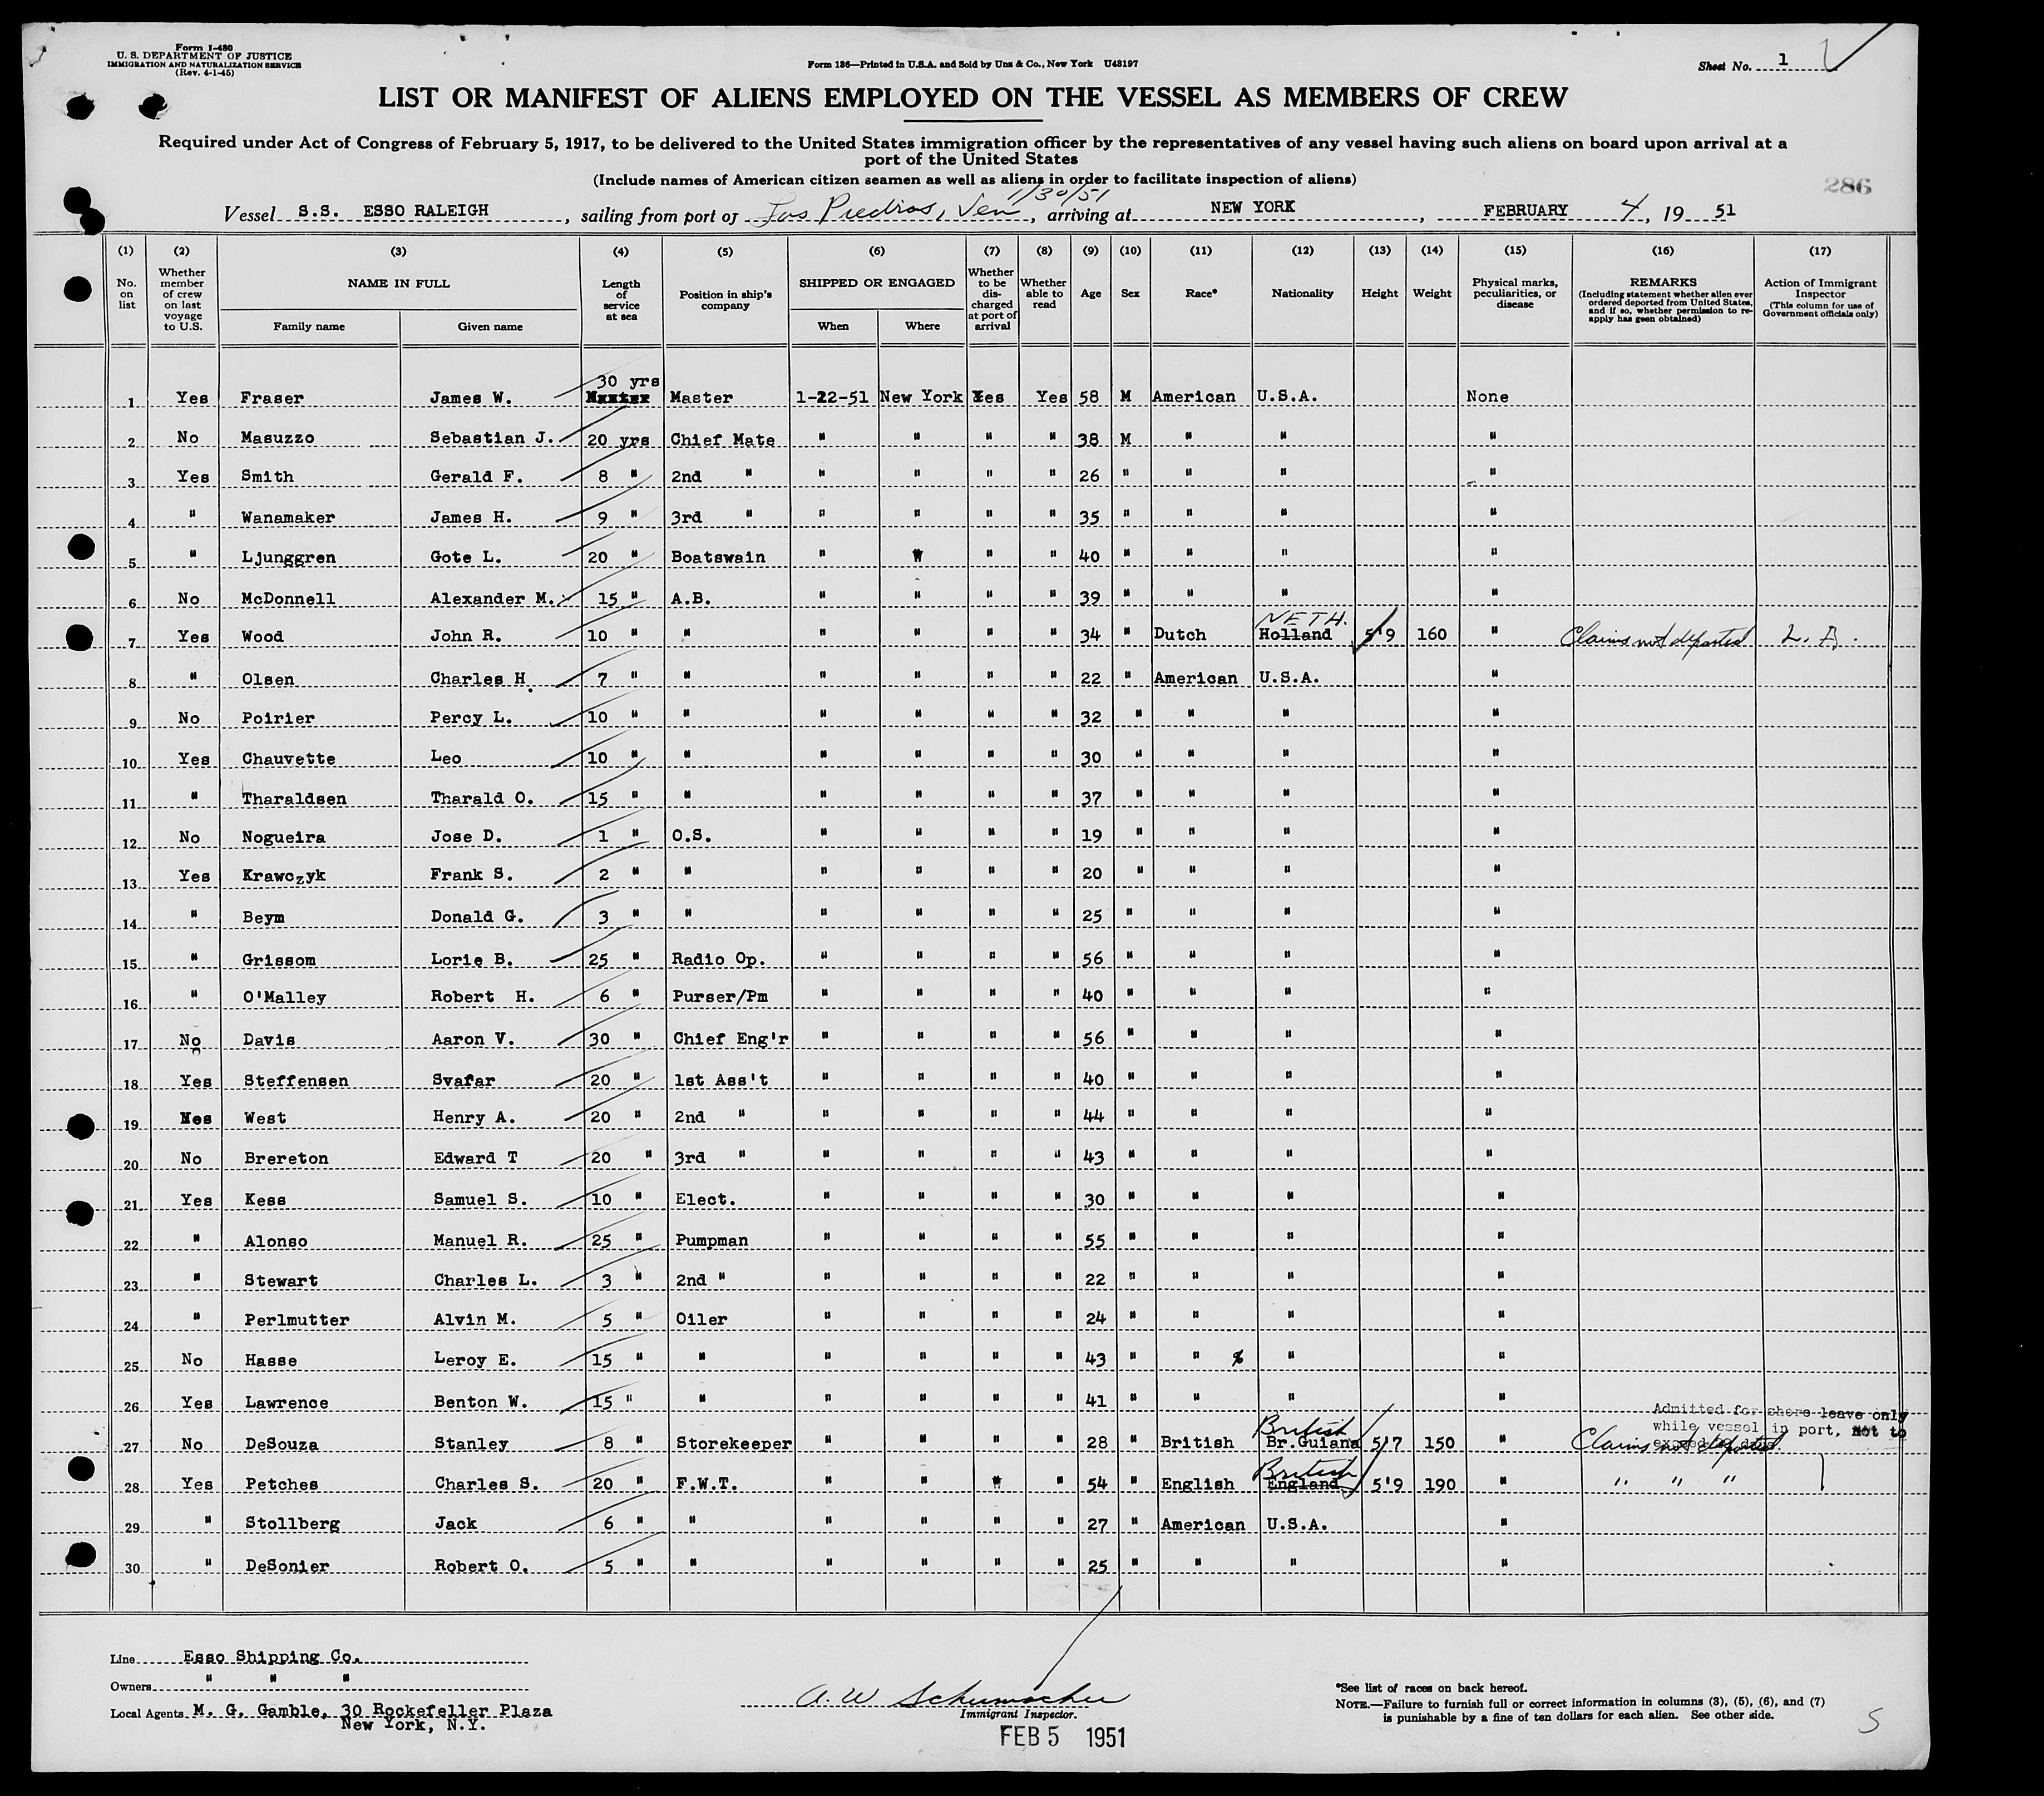 Form I-480
U. S. DEPARTMENT OF JUSTICE
IMMIGRATION AND NATURALIZATION SERVICE
(Rev. 4-1-45)
Form 186—Printed in U.S.A. and Sold by Unz & Co., New York U43197
Sheet No. 1
LIST OR MANIFEST OF ALIENS EMPLOYED ON THE VESSEL AS MEMBERS OF CREW
Required under Act of Congress of February 5, 1917, to be delivered to the United States immigration officer by the representatives of any vessel having such aliens on board upon arrival at a
port of the United States
(Include names of American citizen seamen as well as aliens in order to facilitate inspection of aliens)
286
1/30/51
Vessel S.S. ESSO RALEIGH, sailing from port of Las Piedras, Ven, arriving at NEW YORK, FEBRUARY 4, 19 51
(1) (2) (3) (4) (5) (6) (7) (8) (9) (10) (11) (12) (13) (14) (15) (16) (17)
No. on list
Whether member of crew on last voyage to U.S.
NAME IN FULL
Family name Given name
Length of service at sea
Position in ship's company
SHIPPED OR ENGAGED
When Where
Whether to be dis-charged at port of arrival
Whether able to read
Age
Sex
Race*
Nationality
Height
Weight
Physical marks, peculiarities, or disease
REMARKS
(Including statement whether alien ever ordered deported from United States, and if so, whether permission to re-apply has geen obtained)
Action of Immigrant Inspector
(This column for use of Government officials only)
30 yrs
1 Yes Fraser James W. Master 1-22-51 New York Yes Yes 58 M American U.S.A. None
2 No Masuzzo Sebastian J. 20 yrs Chief Mate " " " " 38 M " " "
3 Yes Smith Gerald F. 8 " 2nd " " " " " 26 " " " "
4 " Wanamaker James H. 9 " 3rd " " " " " 35 " " " "
5 " Ljunggren Gote L. 20 " Boatswain " " " " 40 " " " "
6 No McDonnell Alexander M. 15 " A.B. " " " " 39 " " " "
NETH.
7 Yes Wood John R. 10 " " " " " " 34 " Dutch Holland 5'9 160 " Claims not deported L. A.
8 " Olsen Charles H. 7 " " " " " " 22 " American U.S.A. "
9 No Poirier Percy L. 10 " " " " " " 32 " " " "
10 Yes Chauvette Leo 10 " " " " " " 30 " " " "
11 " Tharaldsen Tharald O. 15 " " " " " " 37 " " " "
12 No Nogueira Jose D. 1 " O.S. " " " " 19 " " " "
13 Yes Krawczyk Frank S. 2 " " " " " " 20 " " " "
14 " Beym Donald G. 3 " " " " " " 25 " " " "
15 " Grissom Lorie B. 25 " Radio Op. " " " " 56 " " " "
16 " O'Malley Robert H. 6 " Purser/Pm " " " " 40 " " " "
17 No Davis Aaron V. 30 " Chief Eng'r " " " " 56 " " " "
18 Yes Steffensen Svafar 20 " 1st Ass't " " " " 40 " " " "
19 Yes West Henry A. 20 " 2nd " " " " " 44 " " " "
20 No Brereton Edward T 20 " 3rd " " " " " 43 " " " "
21 Yes Kess Samuel S. 10 " Elect. " " " " 30 " " " "
22 " Alonso Manuel R. 25 " Pumpman " " " " 55 " " " "
23 " Stewart Charles L. 3 " 2nd " " " " " 22 " " " "
24 " Perlmutter Alvin M. 5 " Oiler " " " " 24 " " " "
25 No Hasse Leroy E. 15 " " " " " " 43 " " " "
26 Yes Lawrence Benton W. 15 " " " " " " 41 " " " "
Admitted for shore leave only
while vessel in port, not to
British
27 No DeSouza Stanley 8 " Storekeeper " " " " 28 " British Br.Guiana 5'7 150 " Claims not deported.
British
28 Yes Petches Charles S. 20 " F.W.T. " " " " 54 " English England 5'9 190 " " " "
29 " Stollberg Jack 6 " " " " " " 27 " American U.S.A. "
30 " DeSonier Robert O. 5 " " " " " " 25 " " " "
Line Esso Shipping Co.
Owners " " "
Local Agents M. G. Gamble, 30 Rockefeller Plaza
New York, N.Y.
A. W Schumacher
Immigrant Inspector.
FEB 5 1951
*See list of races on back hereof.
NOTE.—Failure to furnish full or correct information in columns (3), (5), (6), and (7)
is punishable by a fine of ten dollars for each alien. See other side.
5